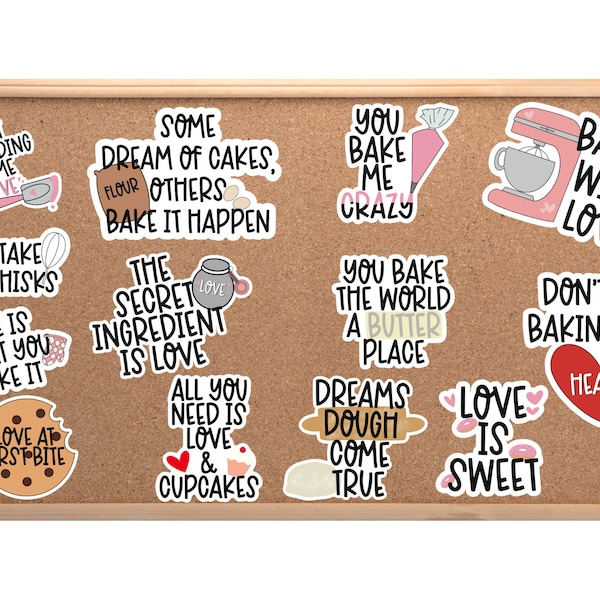 ME
SOME
DREAM OF CAKES,
OTHERS
BAKE IT HAPPEN
FLOUR
YOU
BAKE
ME
CRAZY
TAKE
THE
SECRET
INGREDIENT
IS LOVE
LOVE
YOU BAKE
THE WORLD
A BUTTER
PLACE
DON'T
IS
YOU
IT
LOVE AT
BITE
ALL YOU
NEED IS
LOVE
&
CUPCAKES
DREAMS
DOUGH
COME
TRUE
LOVE
IS
SWEET